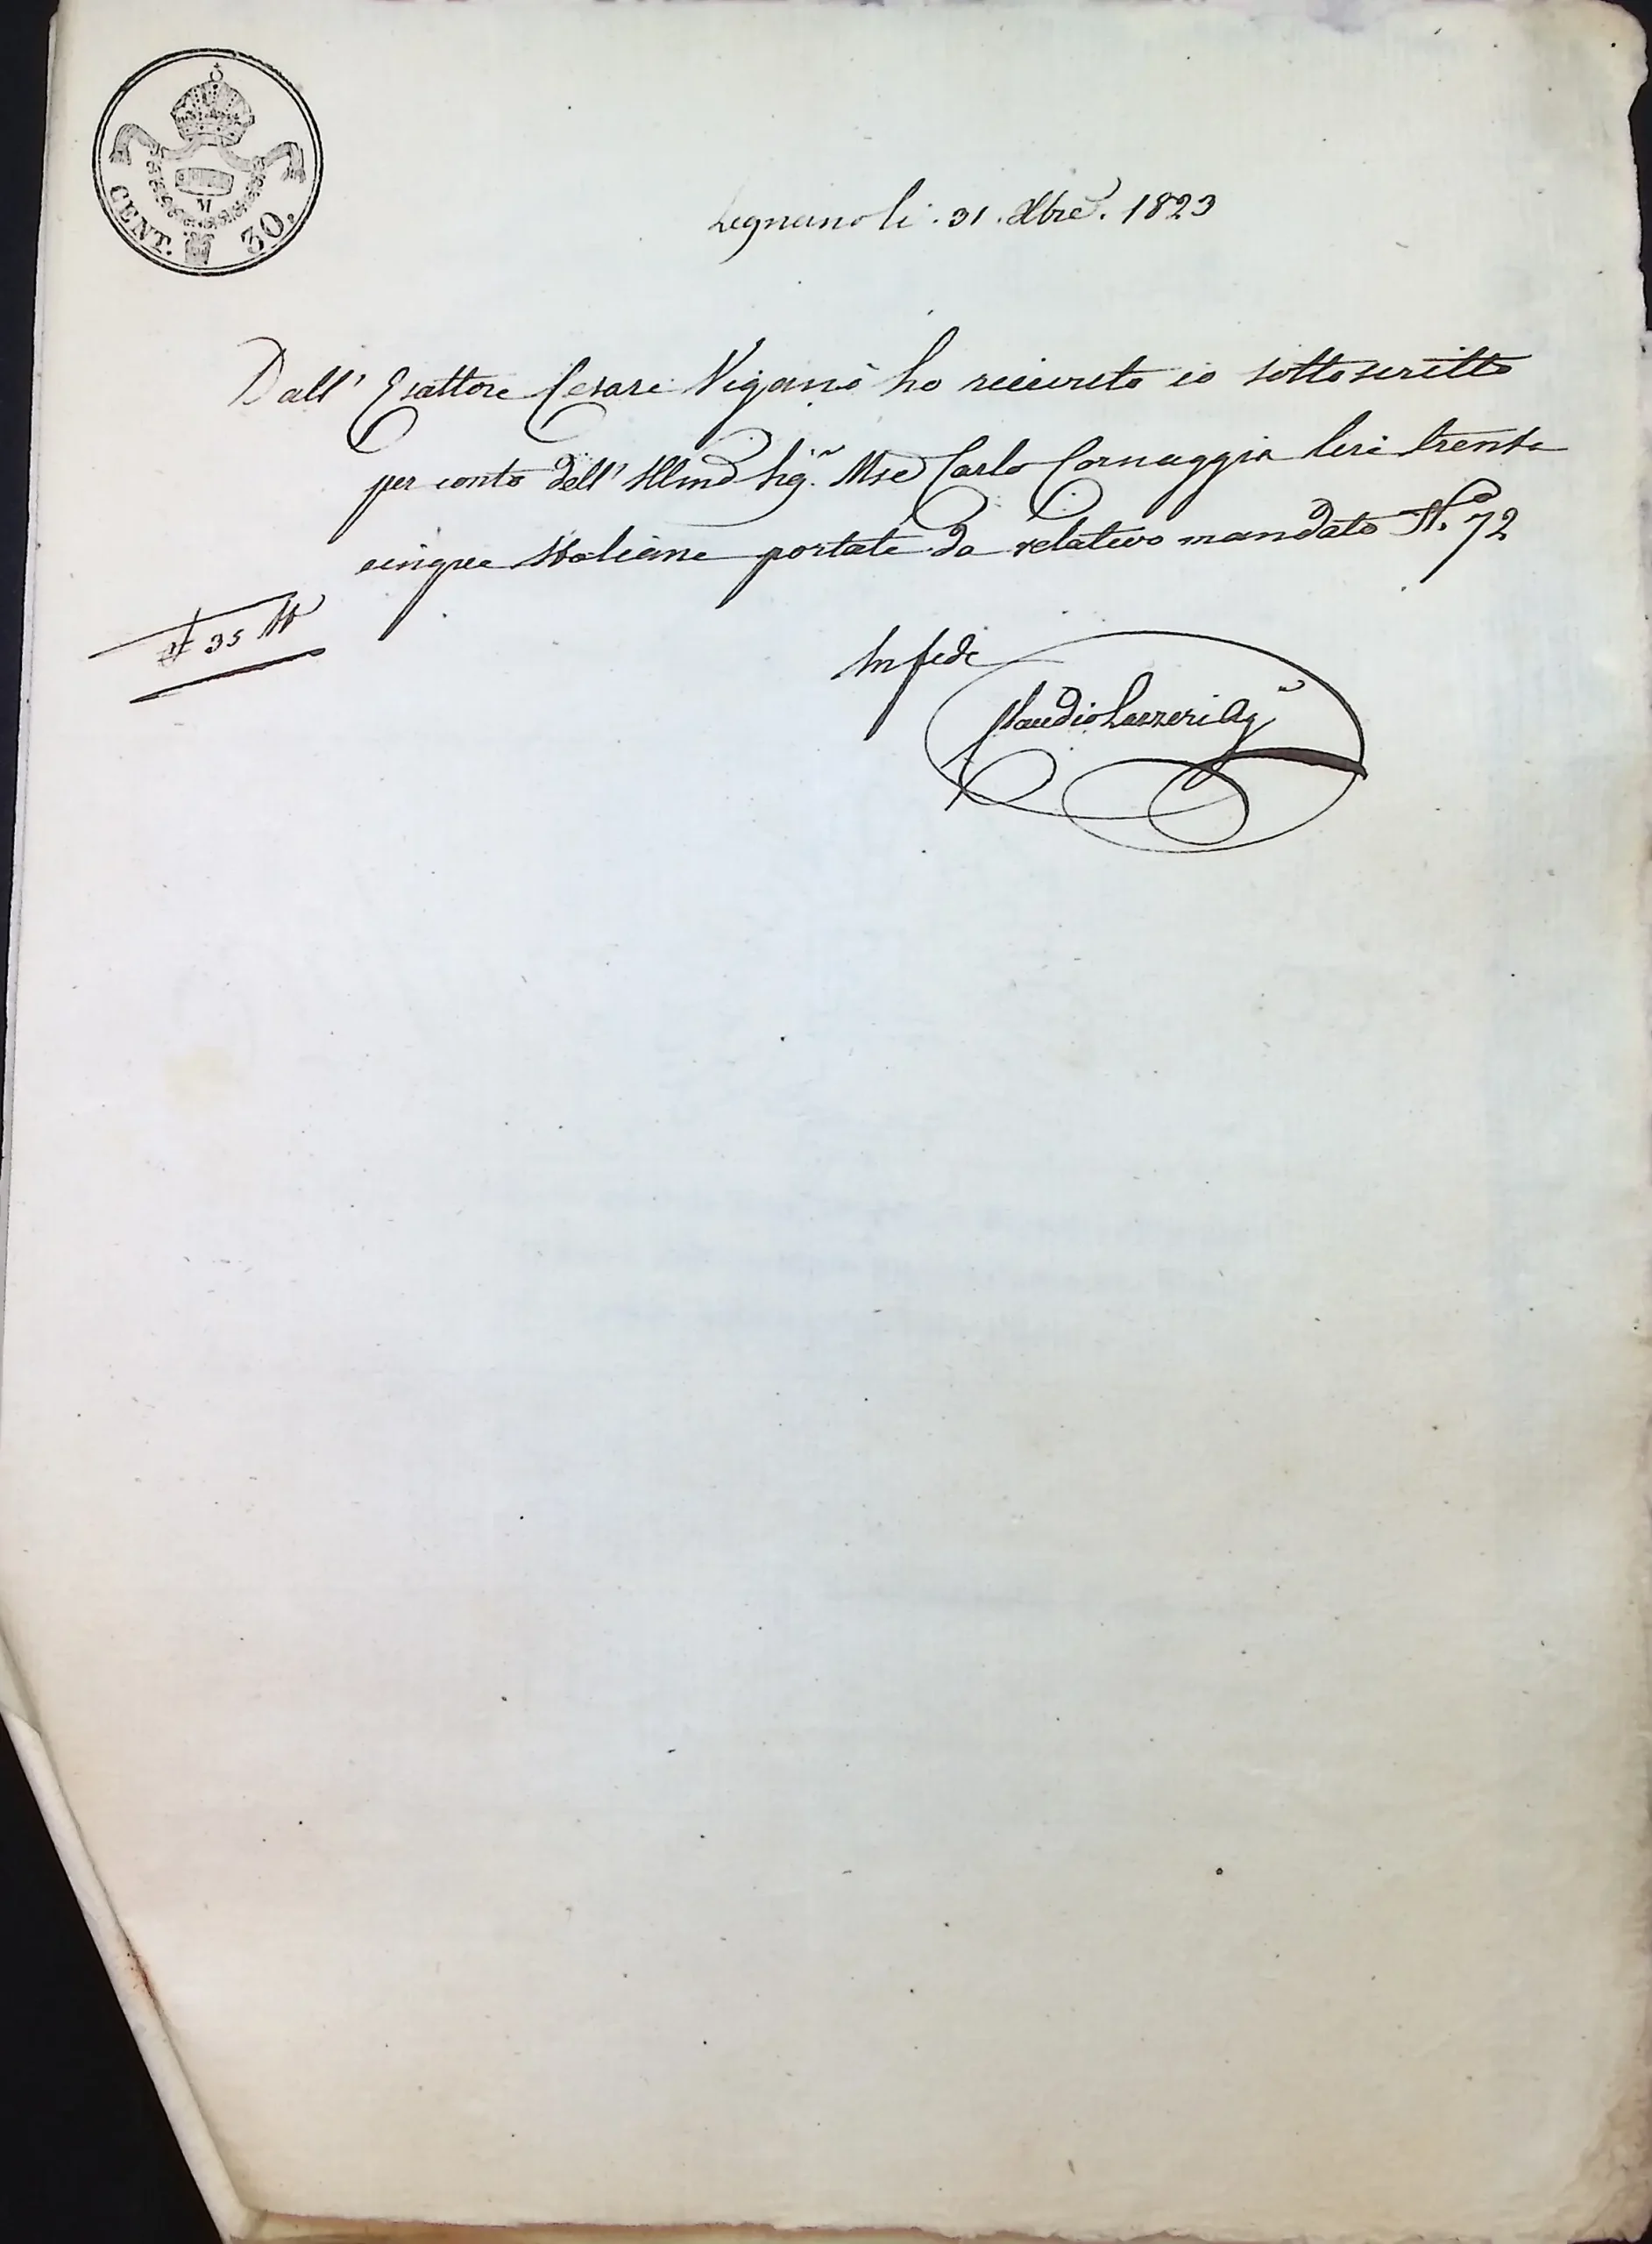 CENT. 30.
M
Legnano li. 31. Xbre. 1823
Dall' Esattore Cesare Viganò ho ricevuto io sottoscritto
per conto dell' Illmo Sigr. Mse Carlo Cornaggia lire trenta
cinque Italiane portate da relativo mandato No. 72
35
In fede
Claudio Lazzeri Ag